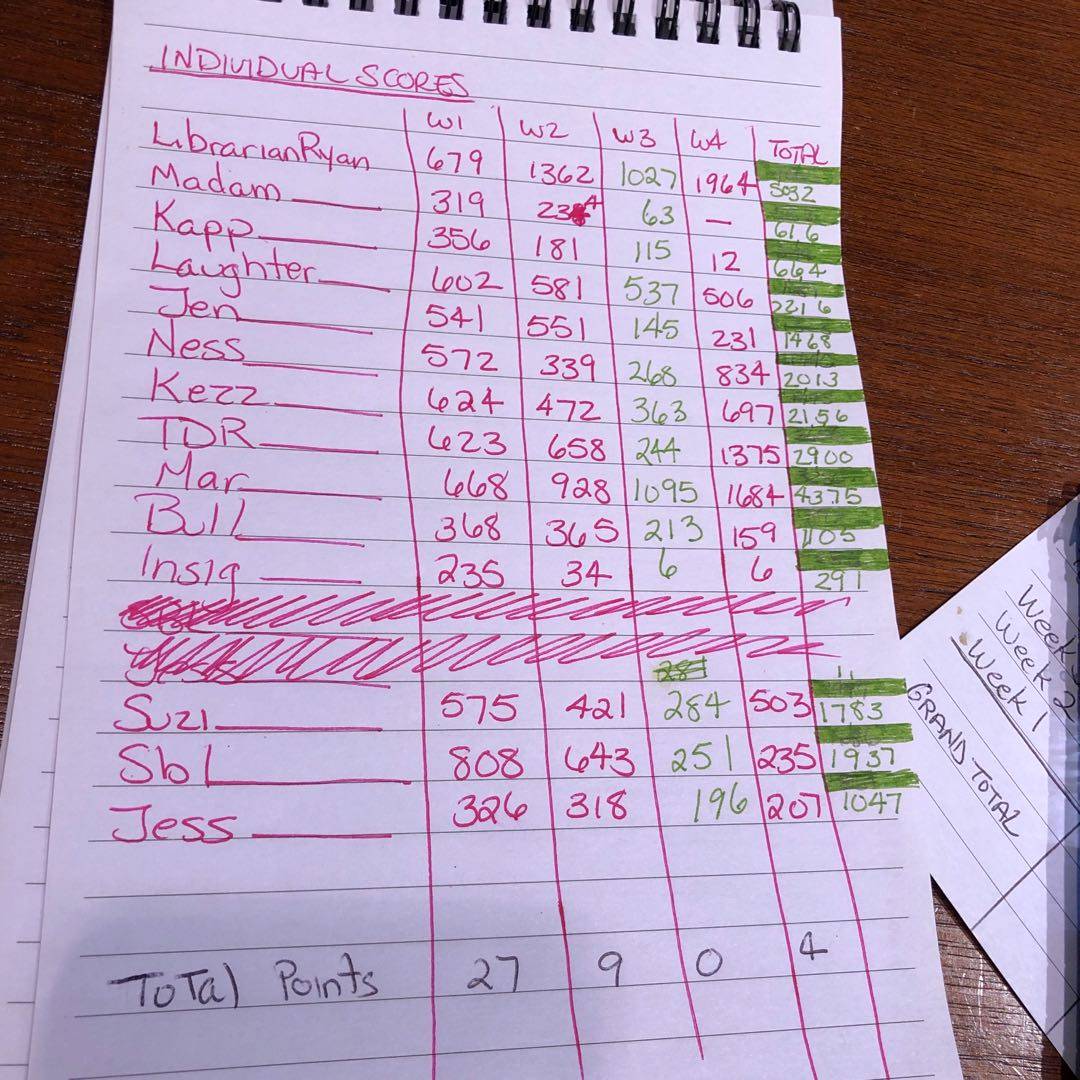 INDIVIDUAL SCORES
W1 W2 W3 W4 TOTAL
LibrarianRyan 679 1362 1027 1964 5032
Madam 319 234 63 — 616
Kapp 356 181 115 12 664
Laughter 602 581 537 506 2216
Jen 541 551 145 231 1468
Ness 572 339 268 834 2013
Kezz 624 472 363 697 2156
TDR 623 658 244 1375 2900
Mar 668 928 1095 1684 4375
Bull 368 365 213 159 1105
Insig 235 34 6 6 291
Suzi 575 421 284 503 1783
Sbl 808 643 251 235 1937
Jess 326 318 196 207 1047
Total Points 27 9 0 4
Week 2
Week 1
GRAND TOTAL